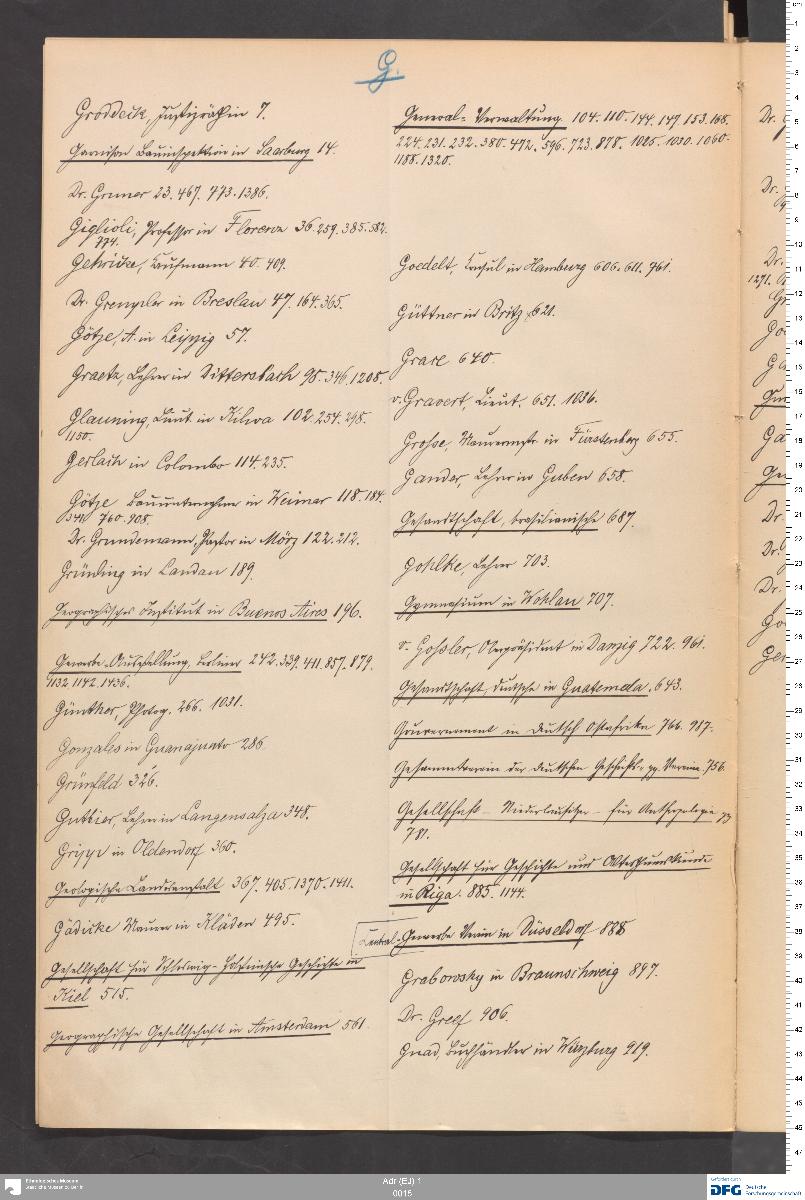 G.
Groddeck, Justizräthin 7.
Garnison Bauinspektion in Saarburg 14.
Dr. Gruner 23. 467. 773. 1386.
Giglioli, Professor in Florenz 36. 259. 385. 582.
774.
Gehricke, Kaufmann 40. 409.
Dr. Grempler in Breslau 47. 164. 365.
Götze, A. in Leipzig 57.
Graetz, Lehrer in Dittersbach 98. 346. 1208.
Glauning, Lieut. in Kilwa 102. 254. 298.
1150.
Gerlach in Colombo 114. 235.
Götze Bauunternehmer in Weimar 118. 184.
341. 760. 908.
Dr. Grundemann, Pastor in Mörz 122. 212.
Gründing in Landau 189.
Geographisches Institut in Buenos Aires 196.
Gewerbe-Ausstellung, Berliner 242. 339. 411. 857. 879.
1132. 1142. 1436.
Günther, Photog. 266. 1031.
Gonzales in Guanajuato 286.
Grünfeld 326.
Gutbier, Lehrer in Langensalza 348.
Gripp in Oldendorf 360.
Geologische Landesanstalt 367. 405. 1370. 1411.
Gädicke Maurer in Kläden 495.
Gesellschaft für Schleswig-Holsteinische Geschichte in
Kiel 515.
Geographische Gesellschaft in Amsterdam 561.
General-Verwaltung 104. 110. 144. 147. 153. 168.
224. 231. 232. 380. 472. 596. 723. 878. 1025. 1030. 1060.
1188. 1320.
Goedelt, Consul in Hamburg 606. 611. 761.
Güttner in Britz 621.
Grare 640.
v. Gravert, Lieut. 651. 1036.
Grosse, Maurermstr in Fürstenberg 655.
Gander, Lehrer in Guben 658.
Gesandtschaft, brasilianische 687.
Gohlke, Lehrer 703.
Gymnasium in Wohlau 707.
v. Gossler, Oberpräsident in Danzig 722. 961.
Gesandtschaft, deutsche in Guatemala, 643.
Gouvernement in Deutsch Ostafrika 766. 987.
Gesammtverein der deutschen Geschichts- pp. Vereine 756.
Gesellschaft - Niederlausitzer - für Anthropologie 773
781.
Gesellschaft für Geschichte und Alterthumskunde
in Riga. 885. 1144.
Central-Gewerbe Verein in Düsseldorf 888
Grabowsky in Braunschweig 897.
Dr. Greef 906.
Gnad, Buchhändler in Würzburg 919.
Ethnologisches Museum
Staatliche Museen zu Berlin
Adr (EJ) 1
0015
Gefördert durch
DFG Deutsche
Forschungsgemeinschaft